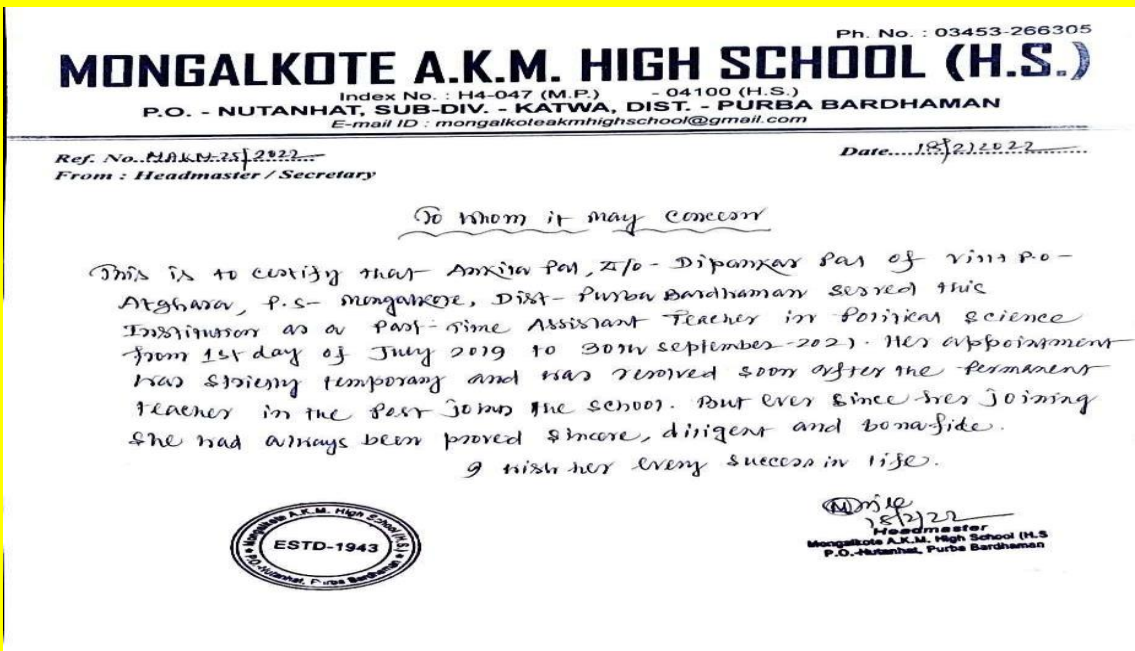 Ph. No. : 03453-266305
MONGALKOTE A.K.M. HIGH SCHOOL (H.S.)
Index No. : H4-047 (M.P.) - 04100 (H.S.)
P.O. - NUTANHAT, SUB-DIV. - KATWA, DIST. - PURBA BARDHAMAN
E-mail ID : mongalkoteakmhighschool@gmail.com
Ref. No. MAKM-25/2022
Date....18/2/2022
From : Headmaster / Secretary
To whom it may concern
This is to certify that Ankita Pal, D/o - Dipankar Pal of vill+P.O-
Atghara, P.S- Mongalkote, Dist- Purba Bardhaman served this
Institution as a Part-Time Assistant Teacher in Political Science
from 1st day of July 2019 to 30th September-2021. Her appointment
was strictly temporary and was resolved soon after the Permanent
Teacher in the Post joins the school. But ever since her joining
she had always been proved sincere, diligent and bonafide.
I wish her every success in life.
Mongalkote A.K.M. High School (H.S.)
ESTD-1943
P.O.-Nutanhat, Purba Bardhaman
18/2/22
Headmaster
Mongalkote A.K.M. High School (H.S
P.O.-Nutanhat, Purba Bardhaman